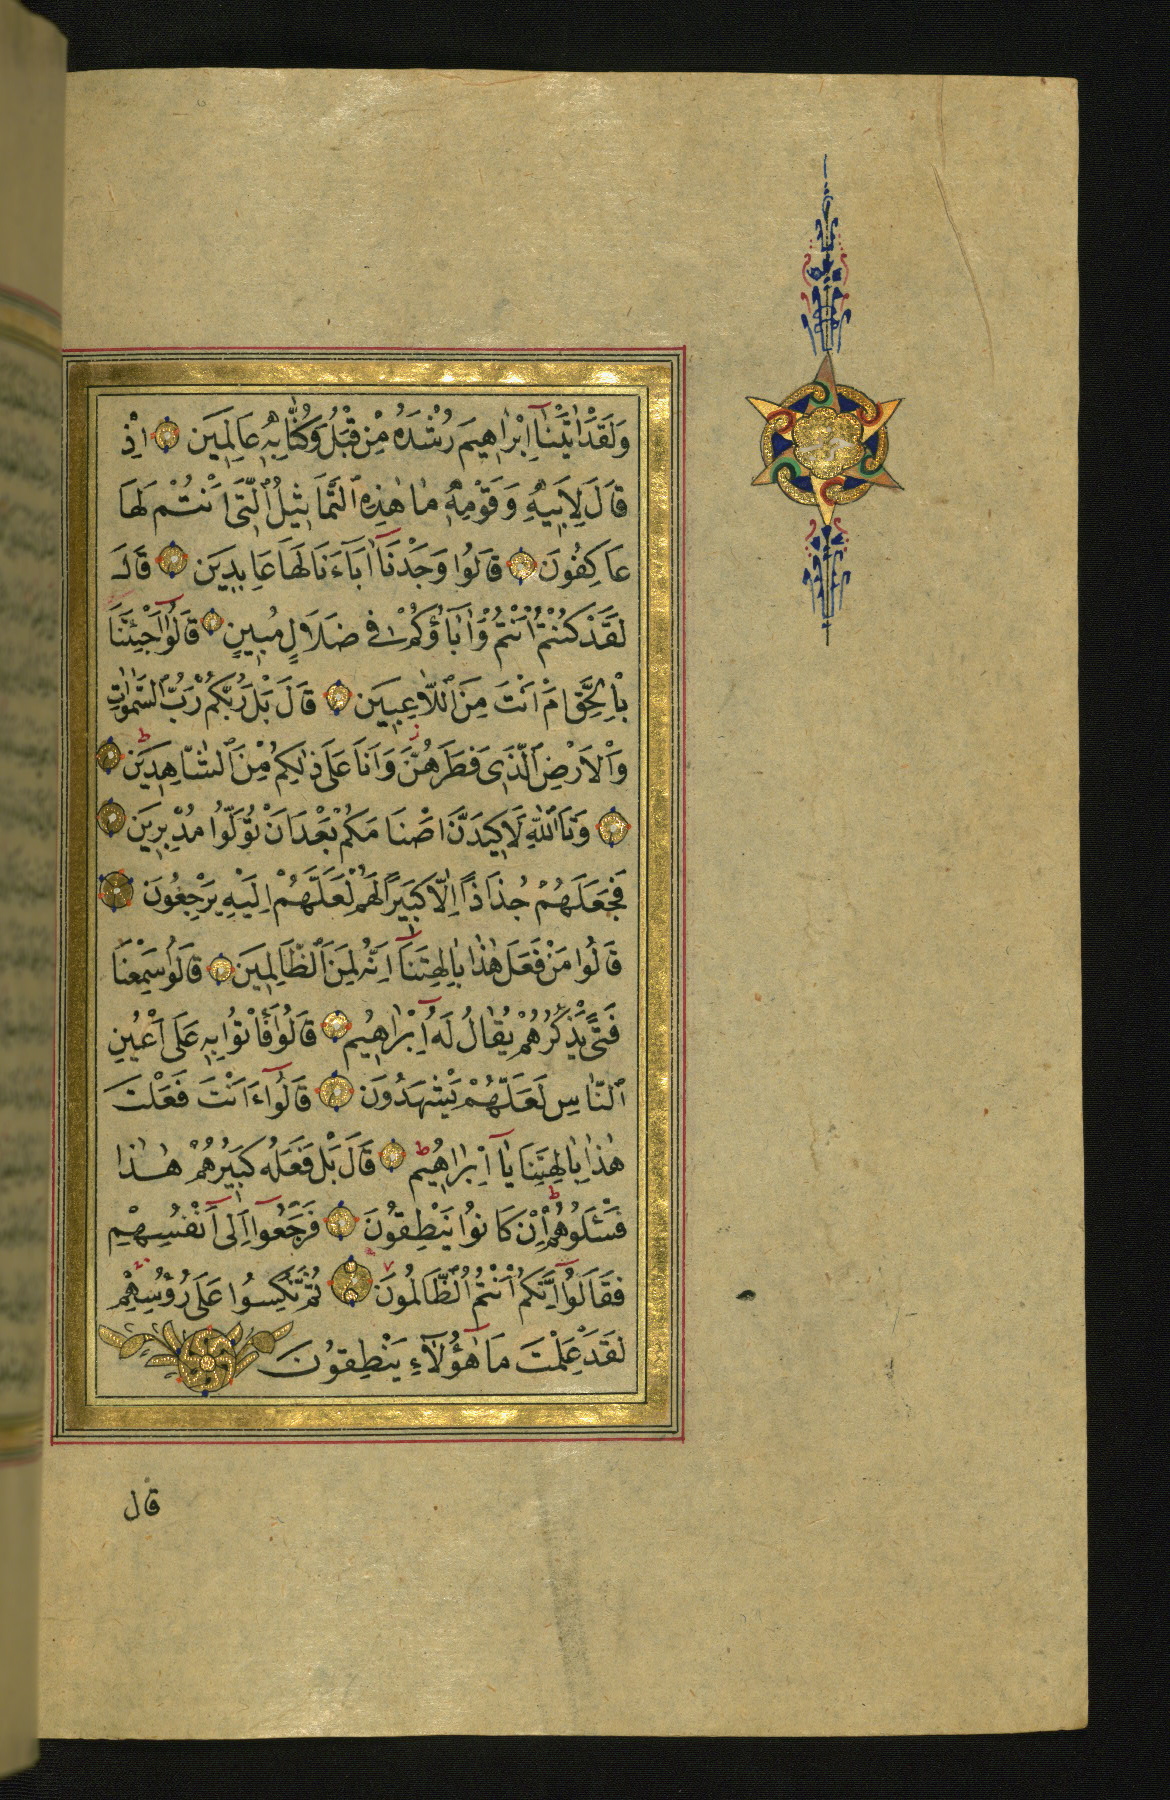 وَلَقَدْ اٰتَيْنَٓا اِبْرٰاهِيمَ رُشْدَهُ مِنْ قَبْلُ وَكُنَّا بِهٖ عَالِمِينَ اِذْ
قَالَ لِاَبِيهِ وَقَوْمِهٖ مَا هٰذِهِ ٱلتَّمَاثِيلُ ٱلَّتٖى اَنْتُمْ لَهَا
عَاكِفُونَ قَالُوا وَجَدْنَٓا اٰبَٓاءَنَا لَهَا عَابِدِينَ قَالَ
لَقَدْ كُنْتُمْ اَنْتُمْ وَاٰبَٓاؤُكُمْ فٖى ضَلَالٍ مُبِينٍ قَالُٓوا اَجِئْتَنَا
بِالْحَقِّ اَمْ اَنْتَ مِنَ ٱللَّاعِبِينَ قَالَ بَلْ رَبُّكُمْ رَبُّ ٱلسَّمٰوَاتِ
وَالْاَرْضِ ٱلَّذٖى فَطَرَهُنَّ وَاَنَا عَلَى ذٰلِكُمْ مِنَ ٱلشَّاهِدِينَ
وَتَاللّٰهِ لَاَكِيدَنَّ اَصْنَامَكُمْ بَعْدَ اَنْ تُوَلُّوا مُدْبِرِينَ
فَجَعَلَهُمْ جُذَاذًا اِلَّا كَبِيرًا لَهُمْ لَعَلَّهُمْ اِلَيْهِ يَرْجِعُونَ
قَالُوا مَنْ فَعَلَ هٰذَا بِاٰلِهَتِنَٓا اِنَّهُ لَمِنَ ٱلظَّالِمِينَ قَالُوا سَمِعْنَا
فَتًى يَذْكُرُهُمْ يُقَالُ لَهُٓ اِبْرٰاهِيمُ قَالُوا فَأْتُوا بِهٖ عَلَٓى اَعْيُنِ
ٱلنَّاسِ لَعَلَّهُمْ يَشْهَدُونَ قَالُٓوا ءَاَنْتَ فَعَلْتَ
هٰذَا بِاٰلِهَتِنَا يَٓا اِبْرٰاهِيمُ قَالَ بَلْ فَعَلَهُ كَبِيرُهُمْ هٰذَا
فَسْـَٔلُوهُمْ اِنْ كَانُوا يَنْطِقُونَ فَرَجَعُٓوا اِلَٓى اَنْفُسِهِمْ
فَقَالُٓوا اِنَّكُمْ اَنْتُمُ ٱلظَّالِمُونَ ثُمَّ نُكِسُوا عَلَى رُؤُسِهِمْ
لَقَدْ عَلِمْتَ مَا هٰٓؤُلَٓاءِ يَنْطِقُونَ
قال